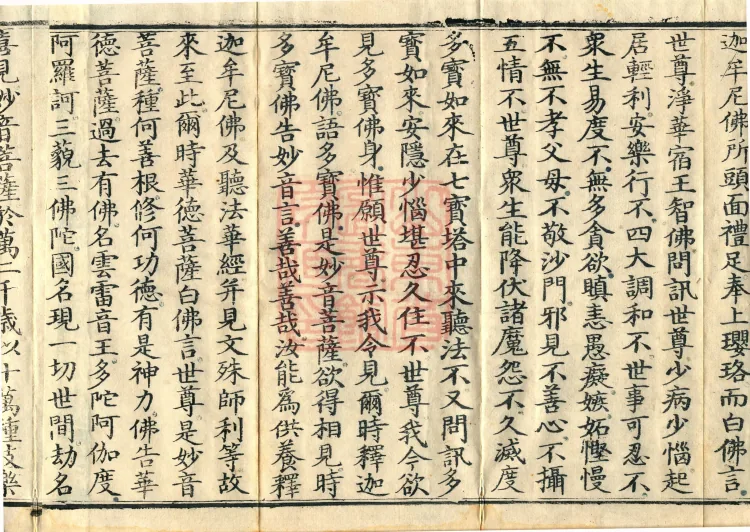 迦牟尼佛所頭面禮足奉上瓔珞而白佛言
世尊淨華宿王智佛問訊世尊少病少惱起
居輕利安樂行不四大調和不世事可忍不
眾生易度不無多貪欲瞋恚愚癡嫉妬慳慢
不無不孝父母不敬沙門邪見不善心不攝
五情不世尊眾生能降伏諸魔怨不久滅度
多寶如來在七寶塔中來聽法不又問訊多
寶如來安隱少惱堪忍久住不世尊我今欲
見多寶佛身惟願世尊示我令見爾時釋迦
牟尼佛語多寶佛是妙音菩薩欲得相見時
多寶佛告妙音言善哉善哉汝能為供養釋
迦牟尼佛及聽法華經并見文殊師利等故
來至此爾時華德菩薩白佛言世尊是妙音
菩薩種何善根修何功德有是神力佛告華
德菩薩過去有佛名雲雷音王多陀阿伽度
阿羅訶三藐三佛陀國名現一切世間劫名
喜見妙音菩薩於萬二千歲以十萬種伎樂